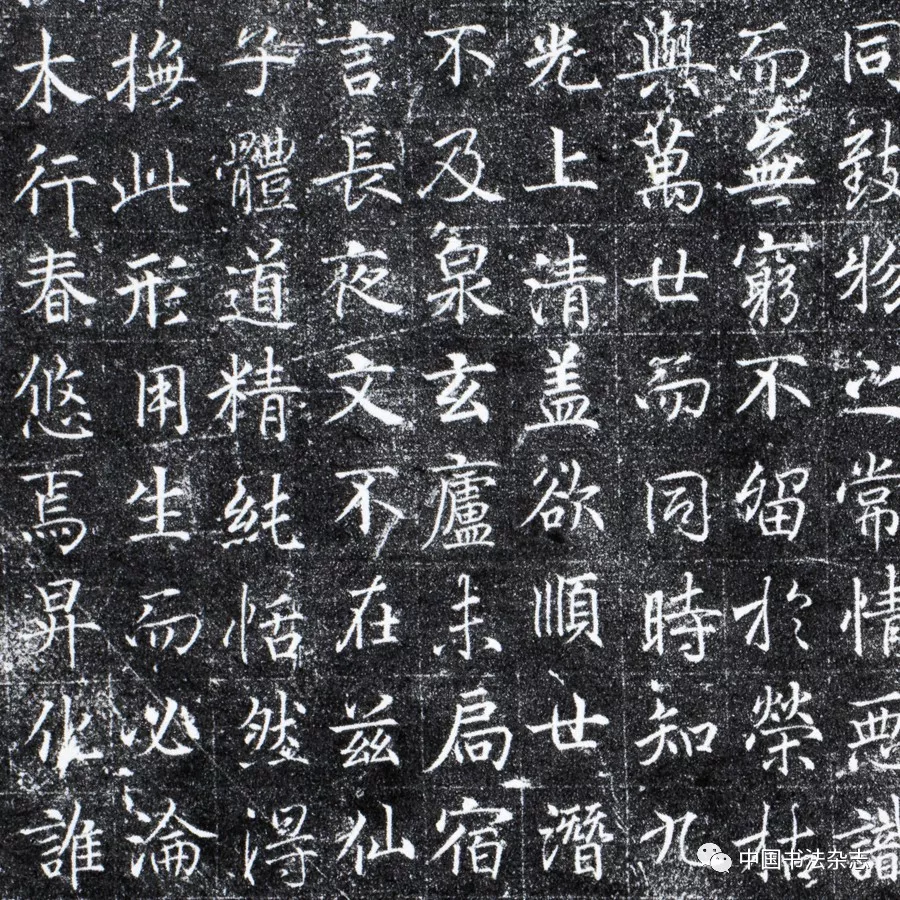 同致物之常情
而無窮不留於榮枯
與萬世而同時知九
光上清盖欲順世潛
不及泉玄廬未扃宿
言長夜文不在兹仙
子體道精純恬然淂
撫此形用生而必淪
木行春悠焉昇化誰
中国书法杂志